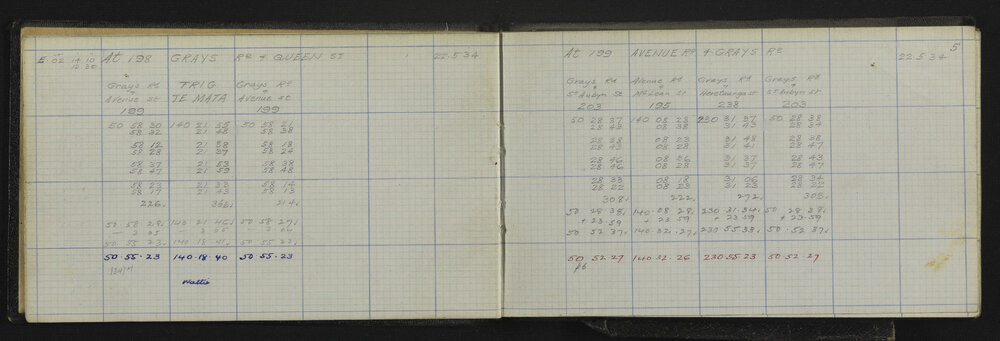 At 198 GRAYS RD & QUEEN ST 22.5.34
Grays Rd TRIG Grays Rd
& &
Avenue St TE MATA Avenue St
199 199
50 58 30 140 21 35 50 58 21
58 32 21 48 58 38
58 12 21 38 58 18
58 28 21 39 58 24
58 37 21 53 58 38
58 47 21 59 58 48
58 23 21 33 58 14
58 17 21 43 58 13
226 214
50 58 28 140 21 45 50 58 27
50 55 23 140 18 41 50 55 23
50.55.23 140.18.40 50.55.23
Wattie
At 199 AVENUE RD & GRAYS RD 22.5.34 5
Grays Rd Avenue Rd Grays Rd Grays Rd
& & & &
St Aubyn St McLean St Heretaunga St St Aubyn St
203 195 238 203
50 28 37 140 08 28 230 31 37 50 28 38
28 43 08 38 31 43 28 34
28 38 08 23 31 48 28 38
28 43 08 28 31 41 28 47
28 46 08 36 31 37 28 43
28 46 08 28 31 37 28 47
28 33 08 18 31 06 28 34
28 22 08 23 31 23 28 22
308 222 272 303
50 28 38 140.08 28 230.31.34 50 28 38
+ 23.59 + 23 59 + 23.59 + 23.59
50 52 37 140.32.27 230.55.33 50.52.37
50 52.27 140.32.26 230.55.23 50.52.27